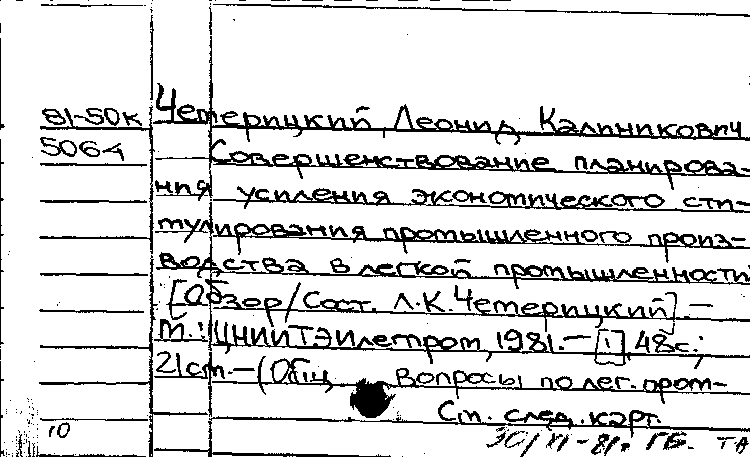 81-50к Четерицкий, Леонид Калиникович
5064 Совершенствование планирова-
ния усиления экономического сти-
мулирования промышленного произ-
водства в легкой промышленности
[Обзор/Сост. Л.К. Четерицкий]. —
М.: ЦНИИТЭИлегпром, 1981. — [1], 48с.;
21см. — (Общ. вопросы по лег. пром-
См. след. карт.
10 30/XI-81г. ГБ. ТА